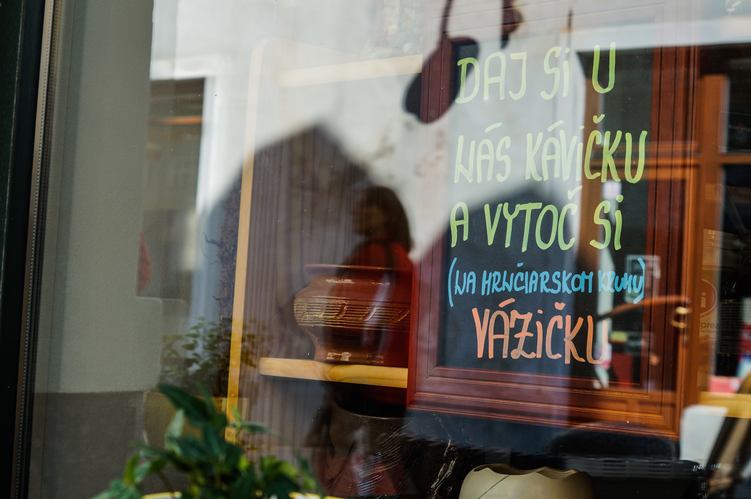 DAJ Si U
NÁS KÁViČKU
A VYTOČ Si
(NA HRNČIARSKOM KRUHU)
VÁZiČKU
i